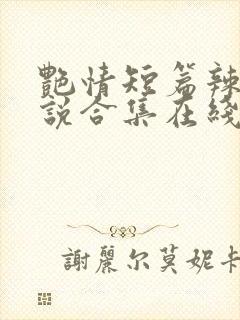 艷情短篇辣
說合集在綫
謝麗尔莫妮卡